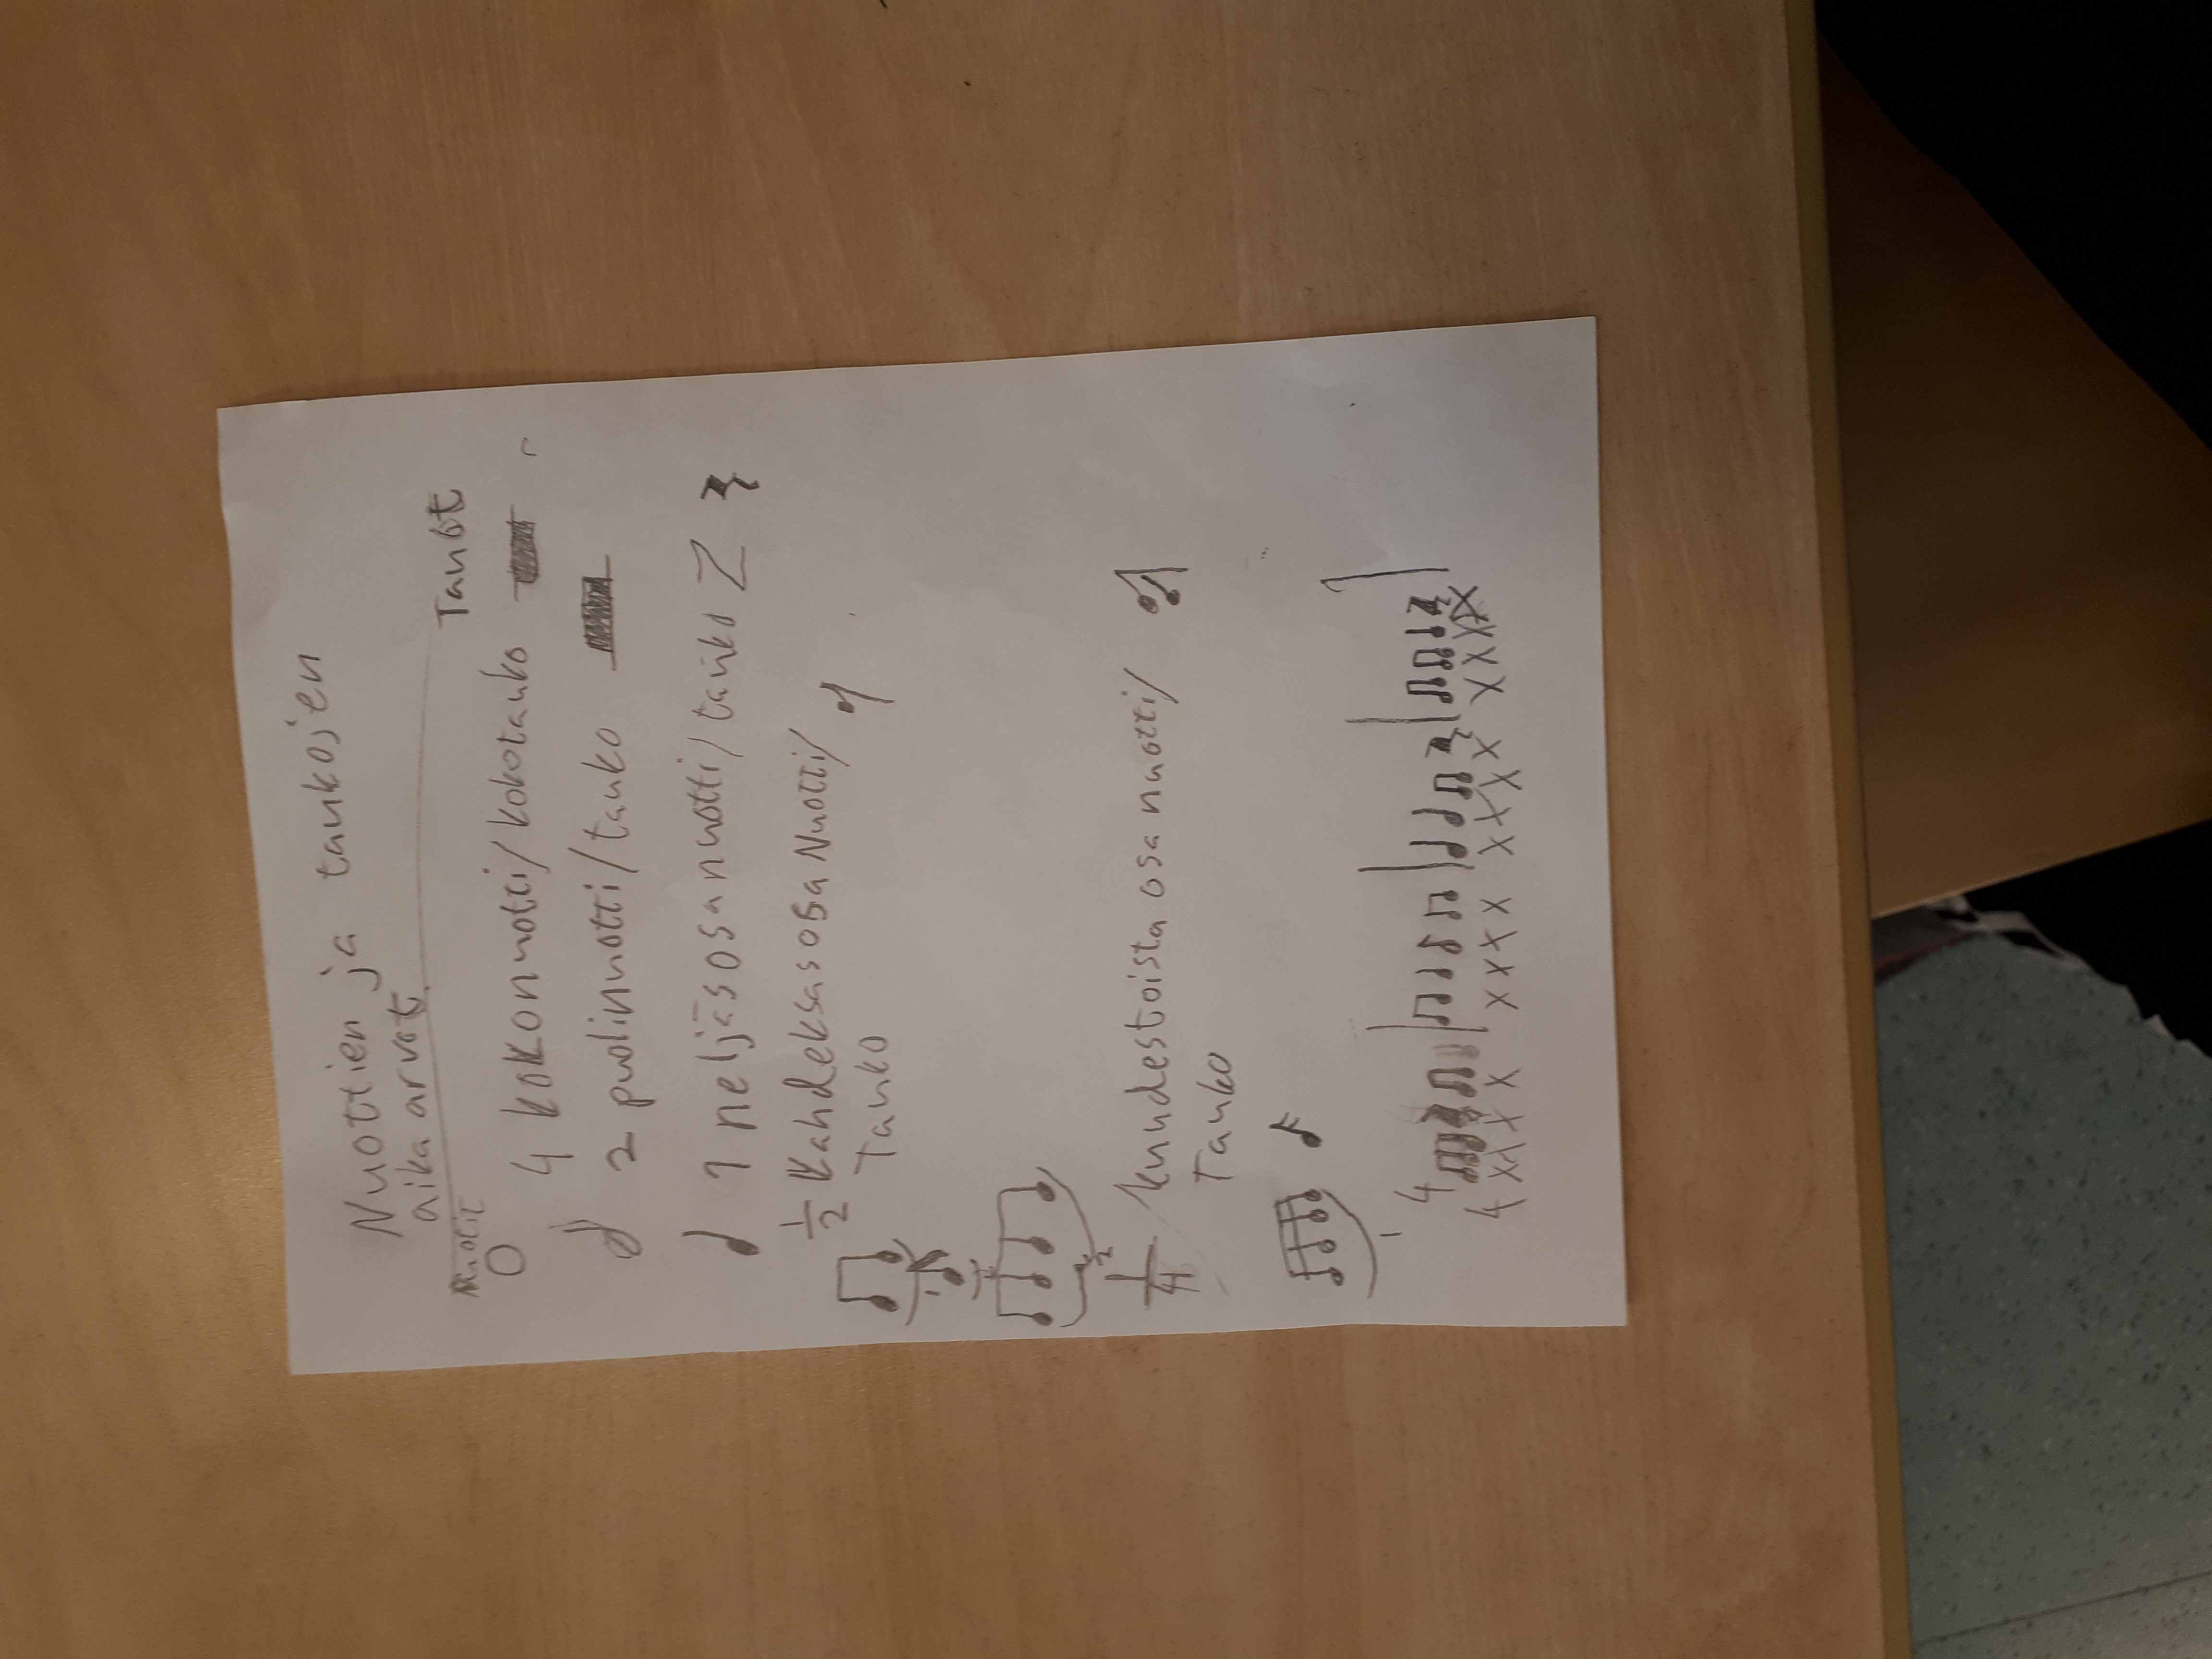 Nuottien ja taukojen
aika arvot
Nuotit Tauot
4 kokonuotti/kokotauko
2 puolinuotti/tauko
1 neljäsosa nuotti/tauko
1/2 Kahdeksasosa Nuotti/
Tauko
1/4 kuudestoista osa nuotti/
Tauko
1
4
4 x x x x x x x x x x x x x x x x